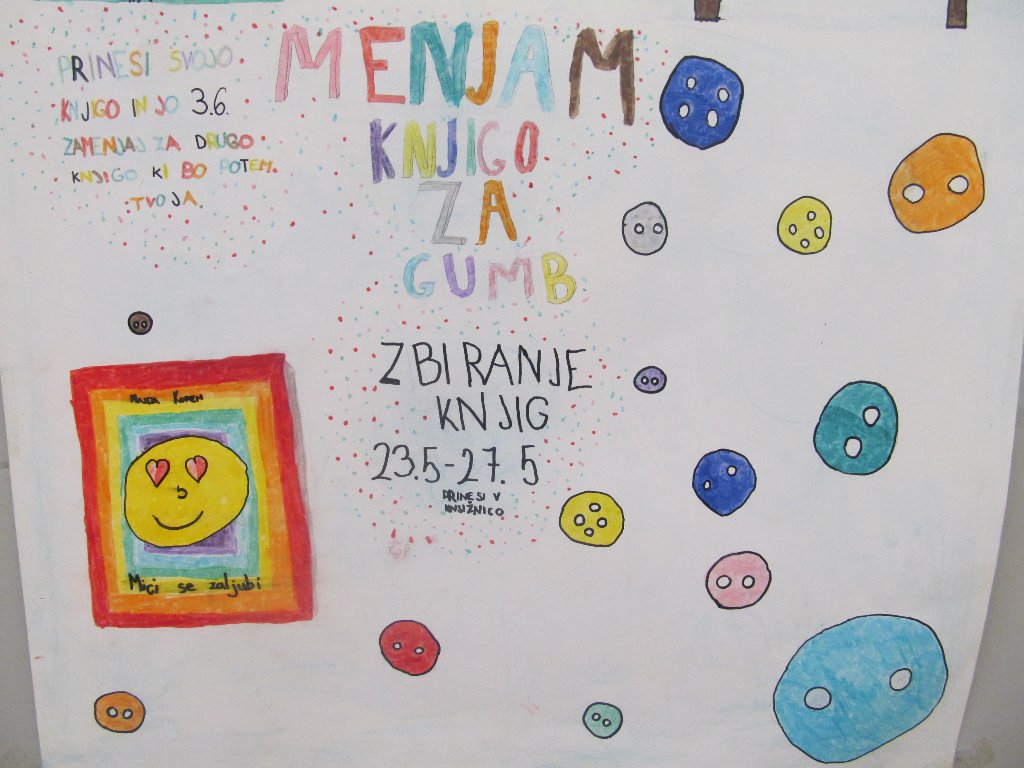 PRINESI SVOJO
KNJIGO IN JO 3.6.
ZAMENJAJ ZA DRUGO
KNJIGO KI BO POTEM
TVOJA.
MENJAM
KNJIGO
ZA
GUMB
ZBIRANJE
KNJIG
23.5-27.5
PRINESI V
KNJIŽNICO
MAJDA KOREN
Mici se zaljubi